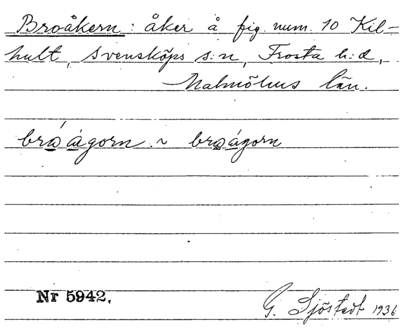 Broåkern: åker å fig. num. 10 Kil-
hult, Svensköps s:n, Frosta h:d,
Malmöhus län.
bróàgorn ~ broágorn
Nr 5942.
G. Sjöstedt 1936